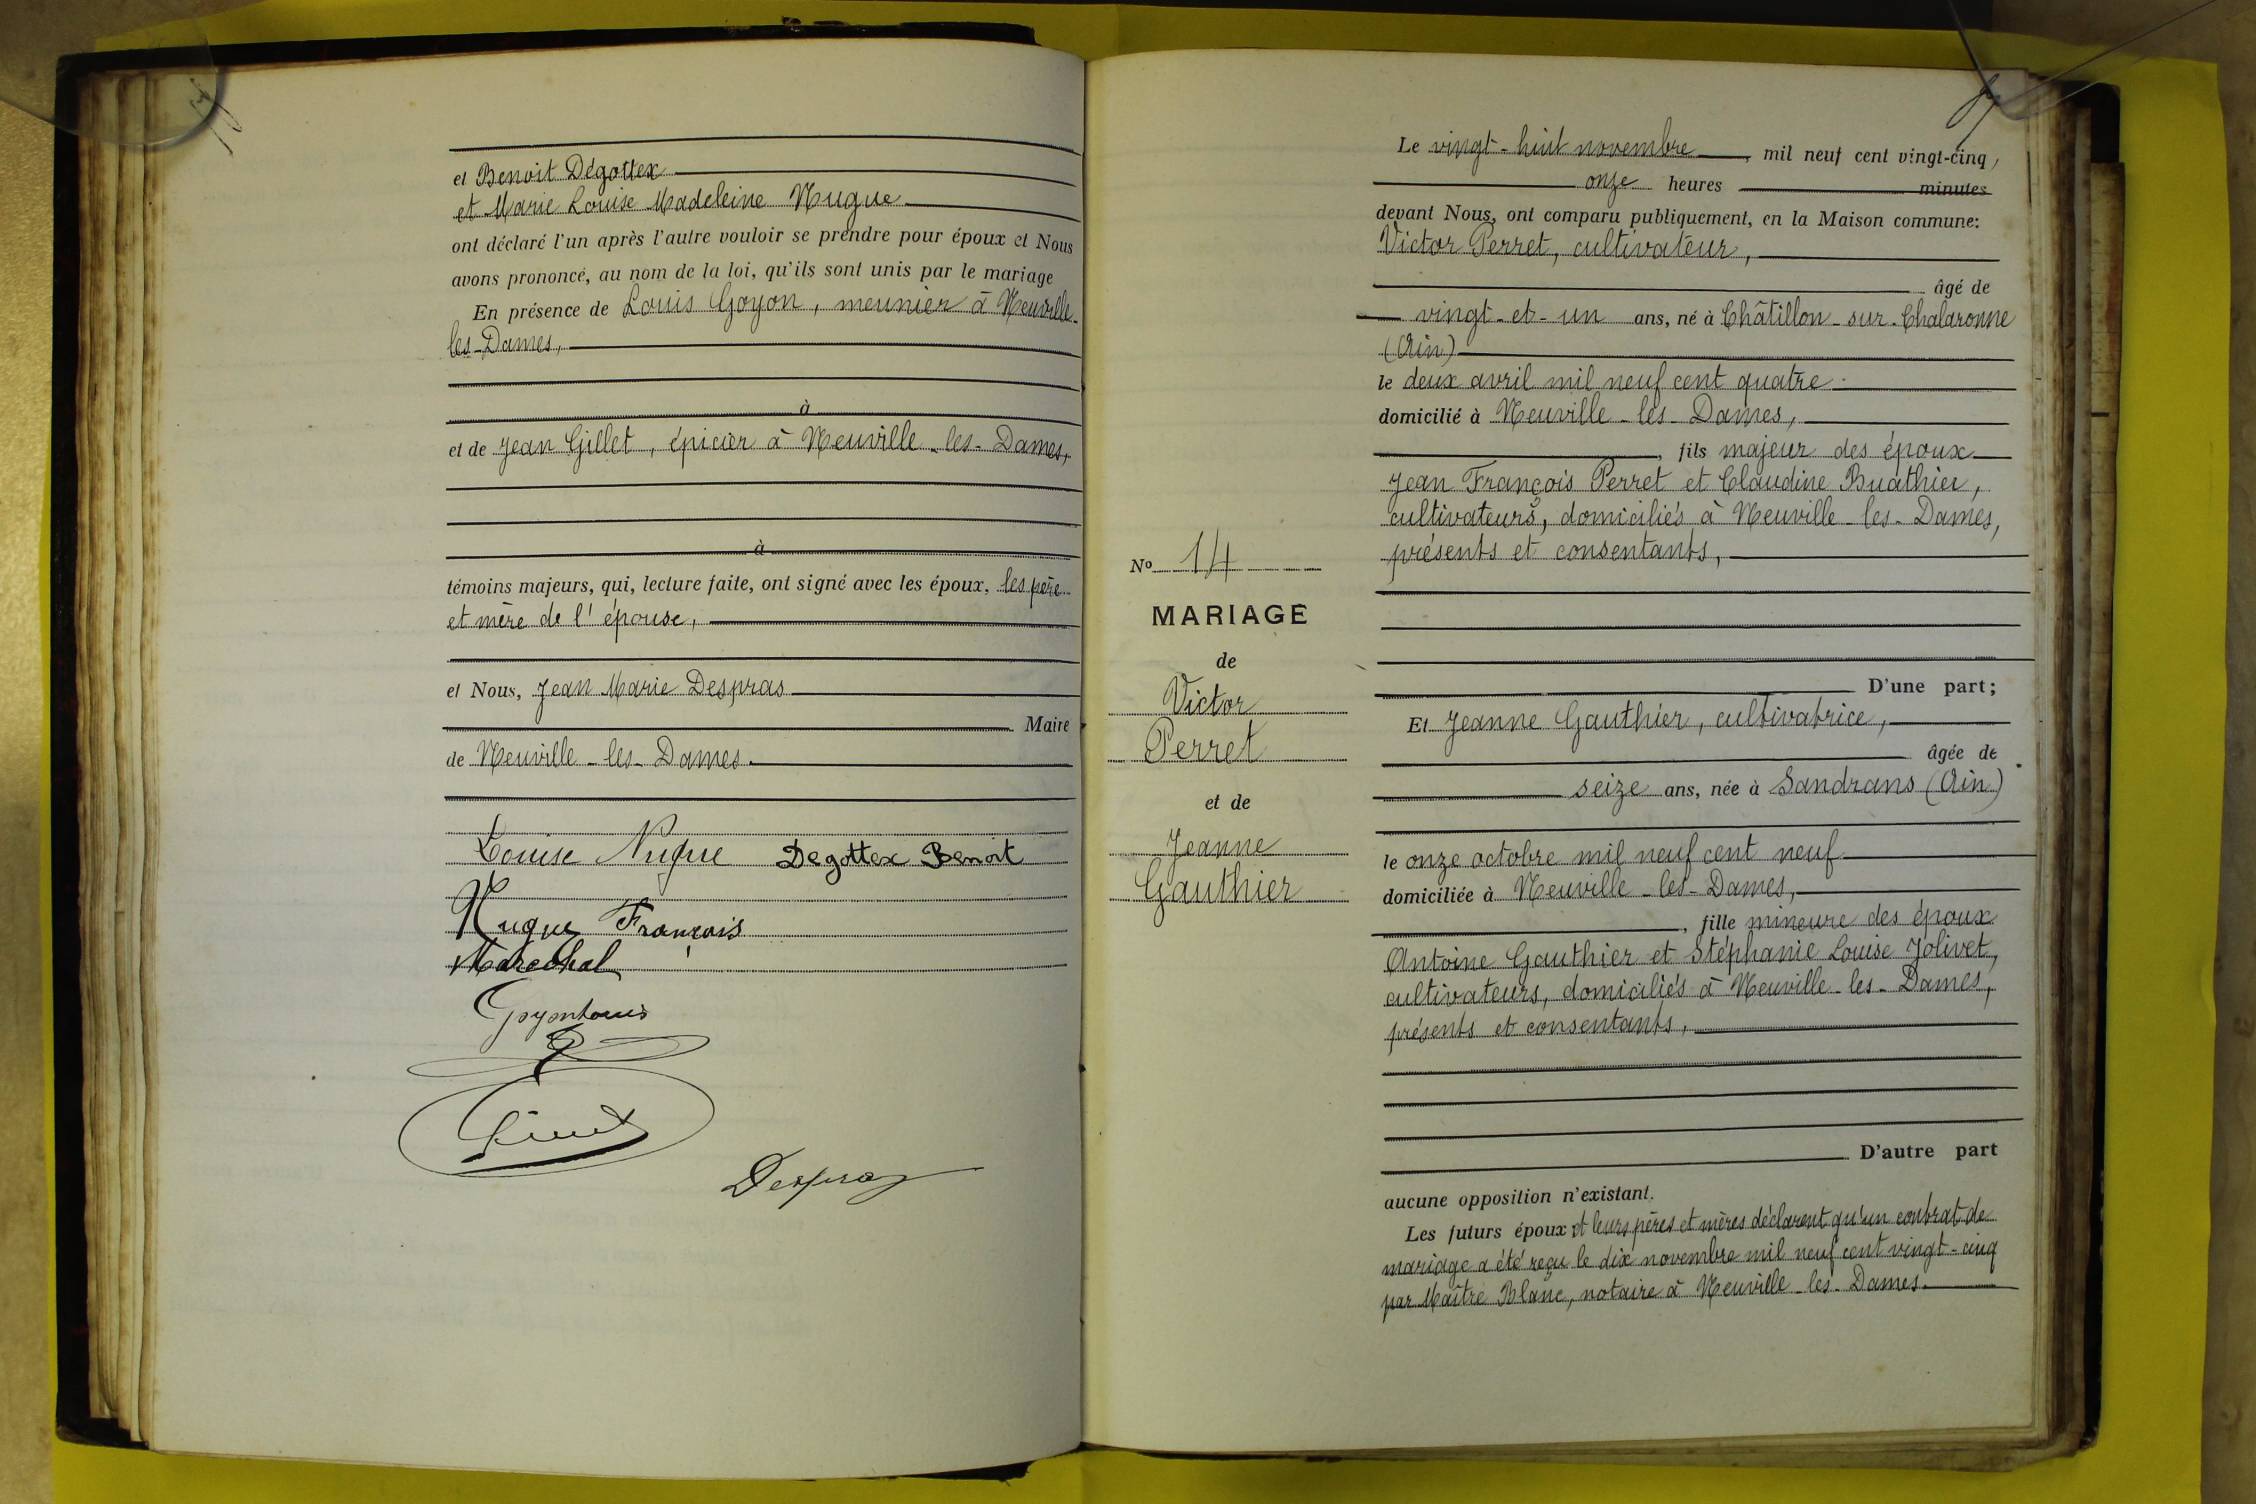 et Benoit Dégottex
et Marie Louise Madeleine Nugue
ont déclaré l'un après l'autre vouloir se prendre pour époux et Nous
avons prononcé, au nom de la loi, qu'ils sont unis par le mariage
En présence de Louis Goyon, meunier à Neuville-
les-Dames,
à
et de Jean Gillet, épicier à Neuville-les-Dames,
à
témoins majeurs, qui, lecture faite, ont signé avec les époux, les père
et mère de l'épouse,
et Nous, Jean Marie Despras
Maire
de Neuville-les-Dames.
Louise Nugue Degottex Benoit
Nugue François
Maréchal
Goyon Louis
Despras
Le vingt-huit novembre, mil neuf cent vingt-cinq,
onze heures minutes
devant Nous, ont comparu publiquement, en la Maison commune:
Victor Perret, cultivateur,
âgé de
vingt-et-un ans, né à Châtillon-sur-Chalaronne
(Ain)
le deux avril mil neuf cent quatre
domicilié à Neuville-les-Dames,
, fils majeur des époux
Jean François Perret et Claudine Buathier,
cultivateurs, domiciliés à Neuville-les-Dames,
présents et consentants,
No 14
MARIAGE
de
Victor
Perret
et de
Jeanne
Gauthier
D'une part;
Et Jeanne Gauthier, cultivatrice,
âgée de
seize ans, née à Sandrans (Ain)
le onze octobre mil neuf cent neuf
domiciliée à Neuville-les-Dames,
, fille mineure des époux
Antoine Gauthier et Stéphanie Louise Jolivet,
cultivateurs, domiciliés à Neuville-les-Dames,
présents et consentants,
D'autre part
aucune opposition n'existant.
Les futurs époux et leurs pères et mères déclarent qu'un contrat de
mariage a été reçu le dix novembre mil neuf cent vingt-cinq
par Maître Blanc, notaire à Neuville-les-Dames.